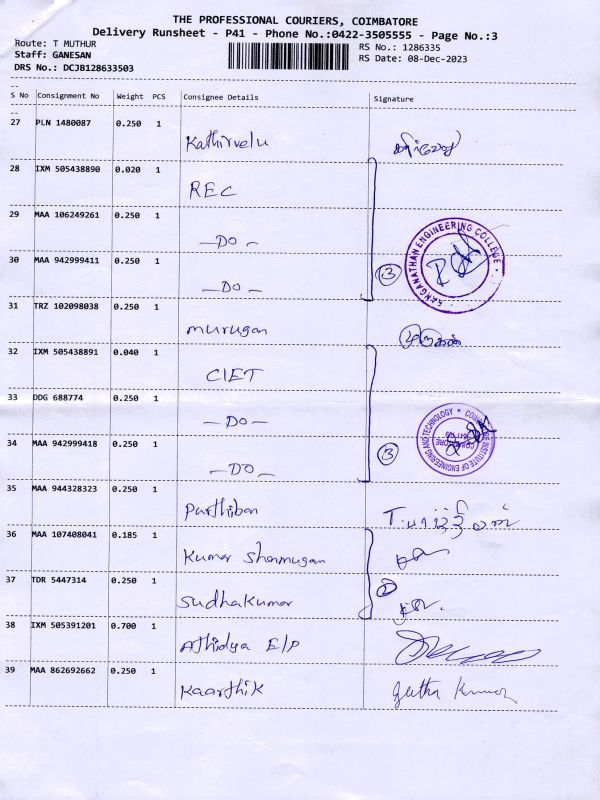 THE PROFESSIONAL COURIERS, COIMBATORE
Delivery Runsheet - P41 - Phone No.:0422-3505555 - Page No.:3
Route: T MUTHUR RS No.: 1286335
Staff: GANESAN RS Date: 08-Dec-2023
DRS No.: DCJB128633503
--
S No Consignment No Weight PCS Consignee Details Signature
--
27 PLN 1480087 0.250 1
Kathirvelu கதிர்வேலு
28 IXM 505438890 0.020 1
REC
29 MAA 106249261 0.250 1
—DO—
30 MAA 942999411 0.250 1
—DO—
3
RANGANATHAN ENGINEERING COLLEGE
31 TRZ 102098038 0.250 1
murugan முருகன்
32 IXM 505438891 0.040 1
CIET
33 DDG 688774 0.250 1
—DO—
34 MAA 942999418 0.250 1
—DO—
3
COIMBATORE INSTITUTE OF ENGINEERING AND TECHNOLOGY
35 MAA 944328323 0.250 1
Parthiban T. பார்த்திபன்
36 MAA 107408041 0.185 1
Kumar Shanmugan
37 TDR 5447314 0.250 1
Sudhakumar
2
38 IXM 505391201 0.700 1
Athidya E/P
39 MAA 862692662 0.250 1
Kaarthik Jutha Kumar